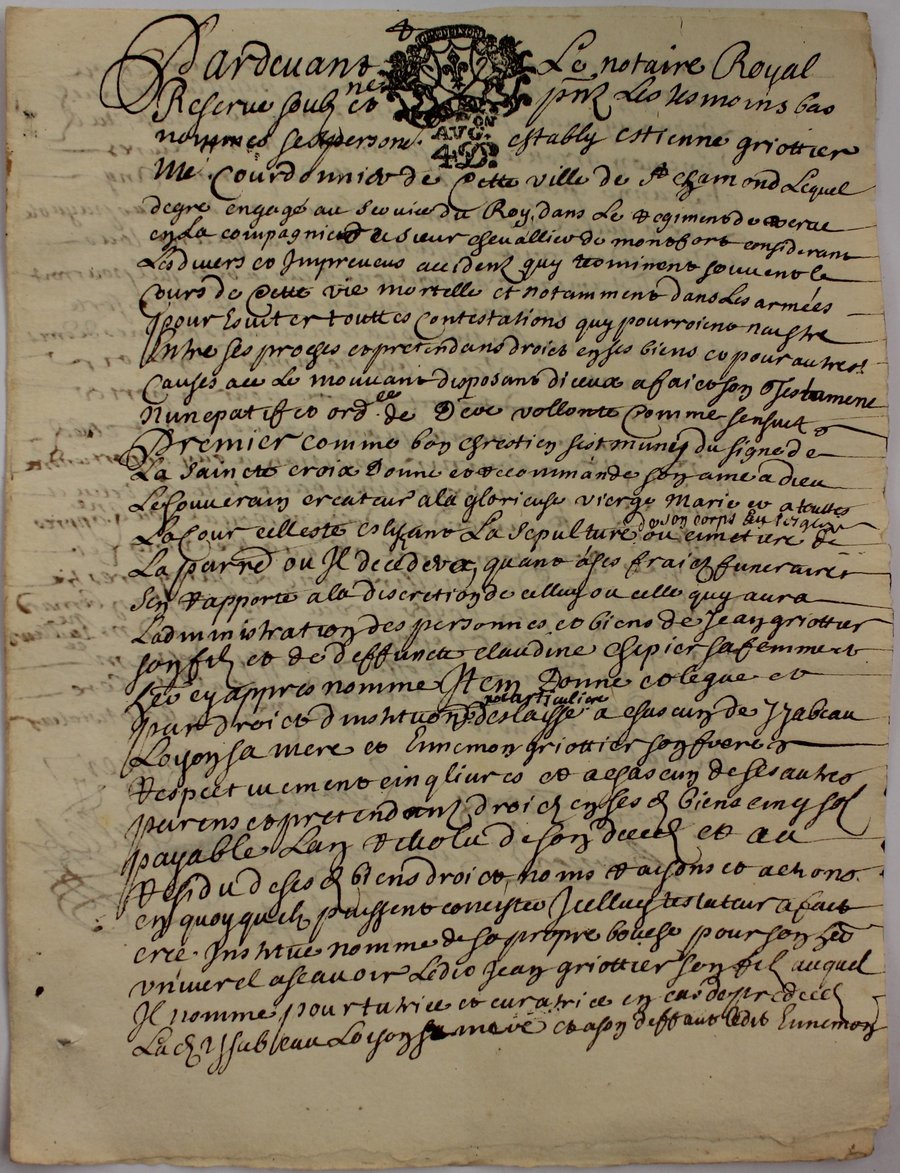 Pardevant Le notaire Royal
Reservé soubz né et pnt Les tesmoins bas
nommés sest personl. estably estienne griottier
Me Courdonnier de Cette ville de st chamond Lequel
degre engagé au Service du Roy, dans Le regiment de
en La compagnie de sieur chevallier de montfort considerant
Les divers et Impreveus accidentz quy terminent souvent le
Cours de Cette vie mortelle et notamment dans Les armées
pour Esviter touttes Contestations quy pourroient naistre
Entre ses proches et pretendans droict en ses biens et pour autres
Causes a ce Le mouvant disposant diceux a faict son Testament
Nuncupatif et ord.ce de Dere vollonté Comme sensuit
Premier comme bon chrestien sest muny du signe de
La Saincte croix Donne et recommande son ame a dieu
Le souverain createur a la glorieuse vierge Marie et a touttes
La Cour celleste eslizant La sepulture de son corps au ou cimetiere de
La parre ou Il decedera, quant a ses fraictz funeraires
sen rapporte a la discretion de celluy ou celle quy aura
Ladministration des personnes et biens de Jean griottier
son filz et de deffuncte claudine chipier sa femme et
her cy appres nommé Item Donne et legue et
par droict dinstituon particuliere deslaisse a chascun de Izabeau
Loyon sa mere et Ennemon griottier son frere
respectivement cinq livres et a chascun de ses autres
parens et pretendantz droictz en ses d biens cinq solz
payable Lan revolu de son decedz et au
residu de ses d biens droict noms raisons et actions
en quoy quelz puissent concister Icelluy testateur a faict
creé Institué nommé de sa propre bouche pour son her
universel ascavoir Ledict Jean griottier son filz auquel
Il nomme pour tutrice et curatrice en cas de predecedz
La d Yssabeau Loison sa mere et a son deffaut ledit Ennemon